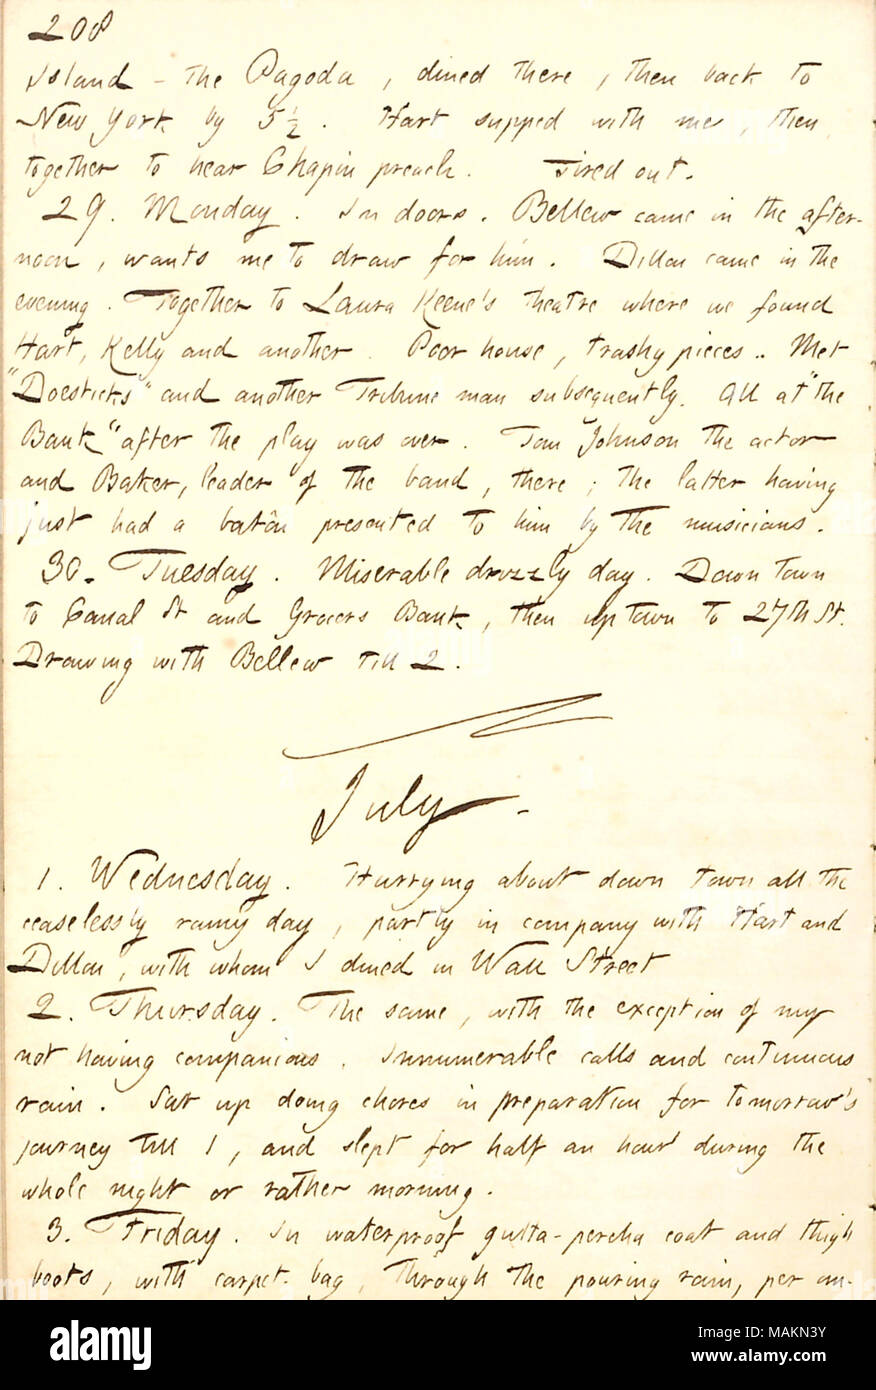 208
Island - the Pagoda, dined there, then back to
New York by 5 1/2. Hart supped with me, then
together to hear Chapin preach. Tired out.
29. Monday. In doors. Bellew came in the after-
noon, wants me to draw for him. Dillon came in the
evening. Together to Laura Keene's theatre where we found
Hart, Kelly and another. Poor house, trashy pieces.. Met
"Doesticks" and another Tribune man subsequently. All at "the
Bank" after the play was over. Tom Johnson the actor
and Baker, leader of the band, there; the latter having
just had a batôn presented to him by the musicians.
30. Tuesday. Miserable drizzly day. Down town
to Canal St and Grocers Bank, then up town to 27th St.
Drawing with Bellew till 2.
July.
1. Wednesday. Hurrying about down town all the
ceaselessly rainy day, partly in company with Hart and
Dillon, with whom I dined in Wall Street
2. Thursday. The same, with the exception of my
not having companions. Innumerable calls and continuous
rain. Sat up doing chores in preparation for tomorrow's
journey till 1, and slept for half an hour during the
whole night or rather morning.
3. Friday. In waterproof gutta-percha coat and thigh
boots, with carpet-bag, through the pouring rain, per om-
alamy
Image ID: MAKN3Y
www.alamy.com